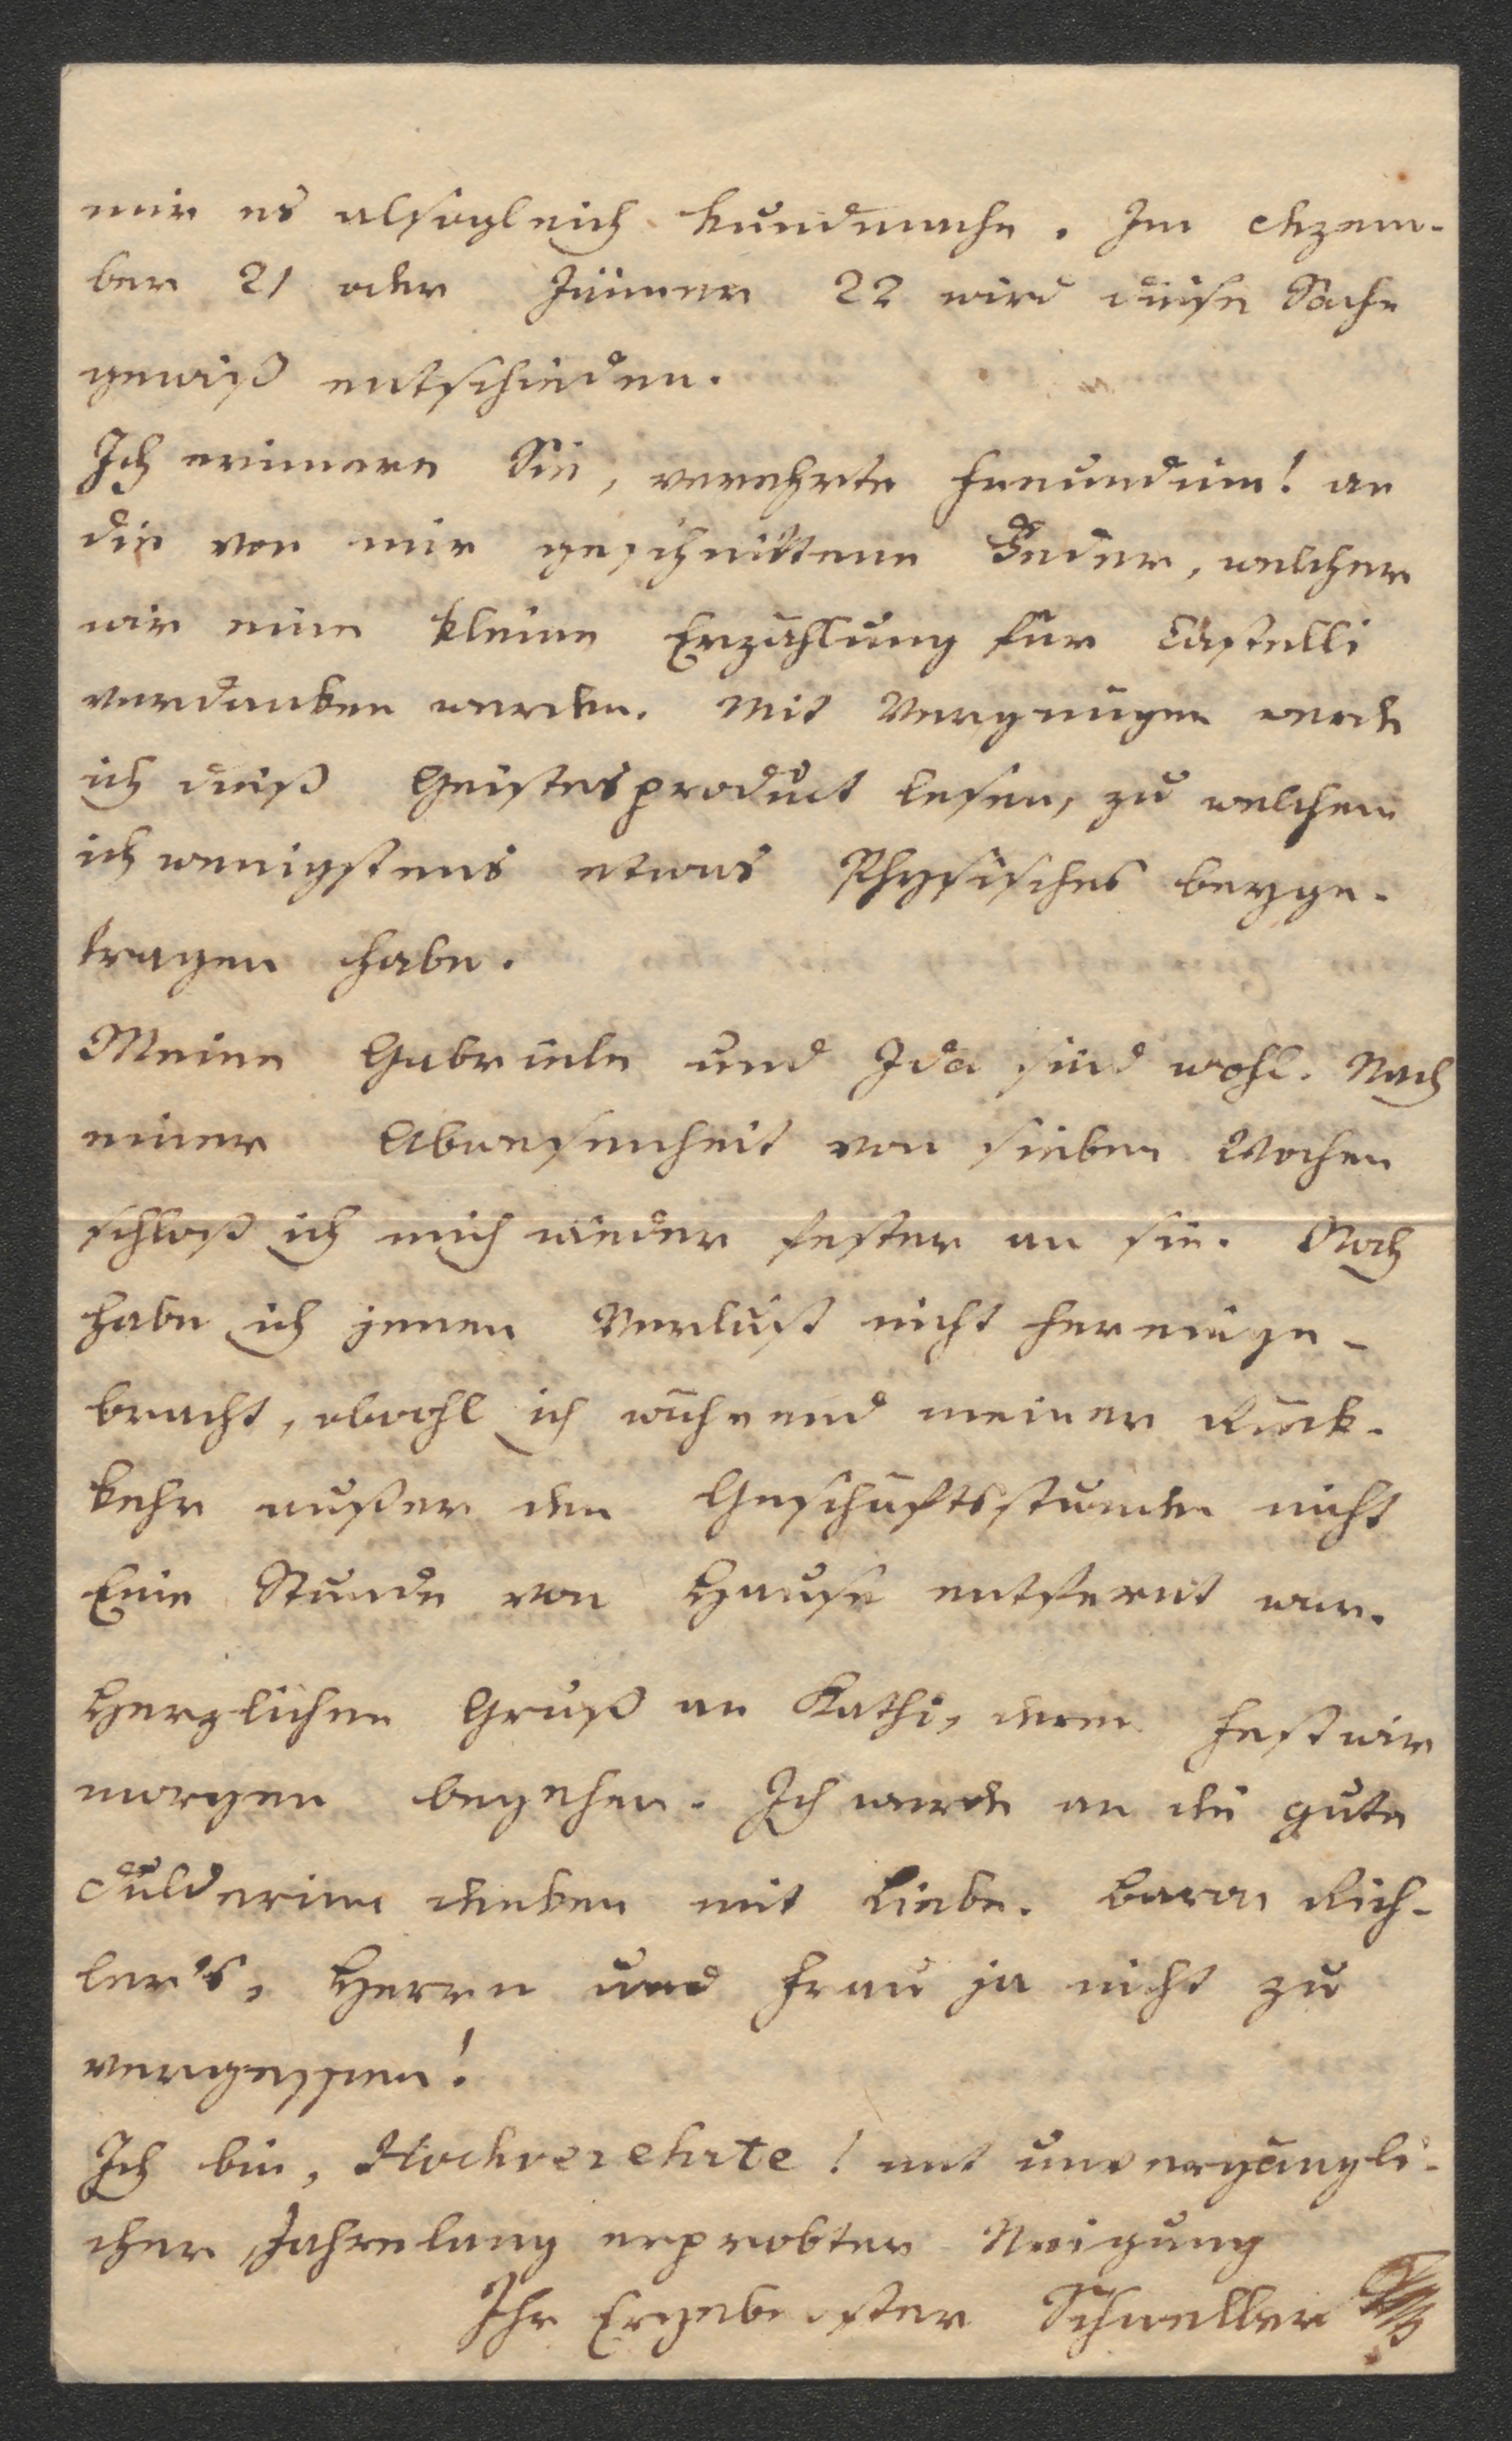 mir es alsogleich kundmache. Im Dezem-
ber 21 oder Jänner 22 wird diese Sache
gewiß entschieden.
Ich erinnere Sie, verehrte Freundinn! an
die von mir geschnittene Feder, welcher
wir eine kleine Erzählung für Castelli
verdanken werden. Mit Vergnügen werde
ich dieß Geistesproduct lesen, zu welchem
ich wenigstens etwas Physisches beyge-
tragen habe.
Meine Gabriele und Ida sind wohl. Nach
einer Abwesenheit von sieben Wochen
schloß ich mich wieder fester an sie. Noch
habe ich jenen Verlust nicht hereinge-
bracht, obwohl ich während meiner Rück-
kehr außer den Geschäftsstunden nicht
Eine Stunde von Hause entfernt war.
Herzlichen Gruß an Kathi, deren Fest wir
morgen begehen. Ich werde an die gute
Dulderinn denken mit Liebe. Baron Rich-
ler's, Herrn und Frau ja nicht zu
vergessen!
Ich bin, Hochverehrte! mit unvergängli-
cher Jahrelang erprobter Neigung
Ihr Ergebenster Schneller